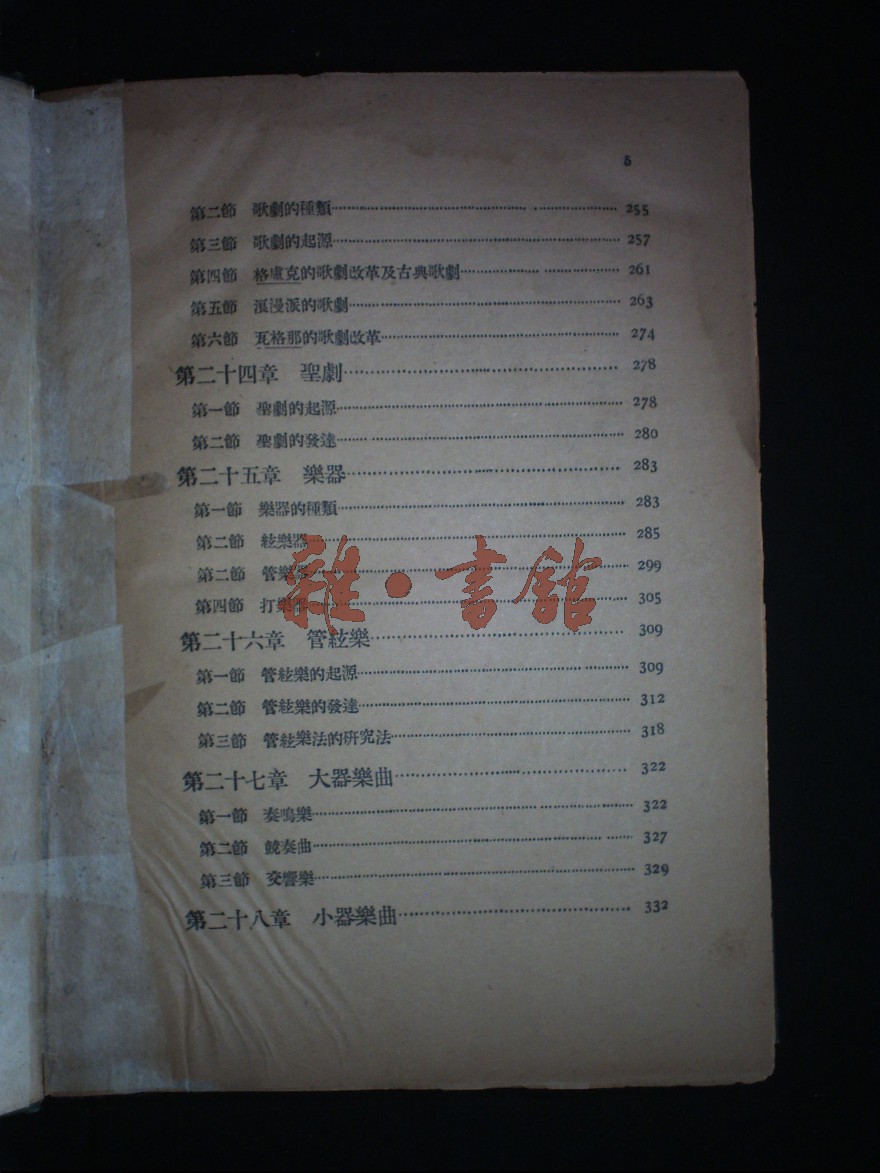 5
第二節 歌劇的種類 255
第三節 歌劇的起源 257
第四節 格盧克的歌劇改革及古典歌劇 261
第五節 浪漫派的歌劇 263
第六節 瓦格那的歌劇改革 274
第二十四章 聖劇 278
第一節 聖劇的起源 278
第二節 聖劇的發達 280
第二十五章 樂器 283
第一節 樂器的種類 283
第二節 絃樂器 285
第二節 管樂器 299
第四節 打樂器 305
雜·書館
第二十六章 管絃樂 309
第一節 管絃樂的起源 309
第二節 管絃樂的發達 312
第三節 管絃樂法的研究法 318
第二十七章 大器樂曲 322
第一節 奏鳴樂 322
第二節 競奏曲 327
第三節 交響樂 329
第二十八章 小器樂曲 332